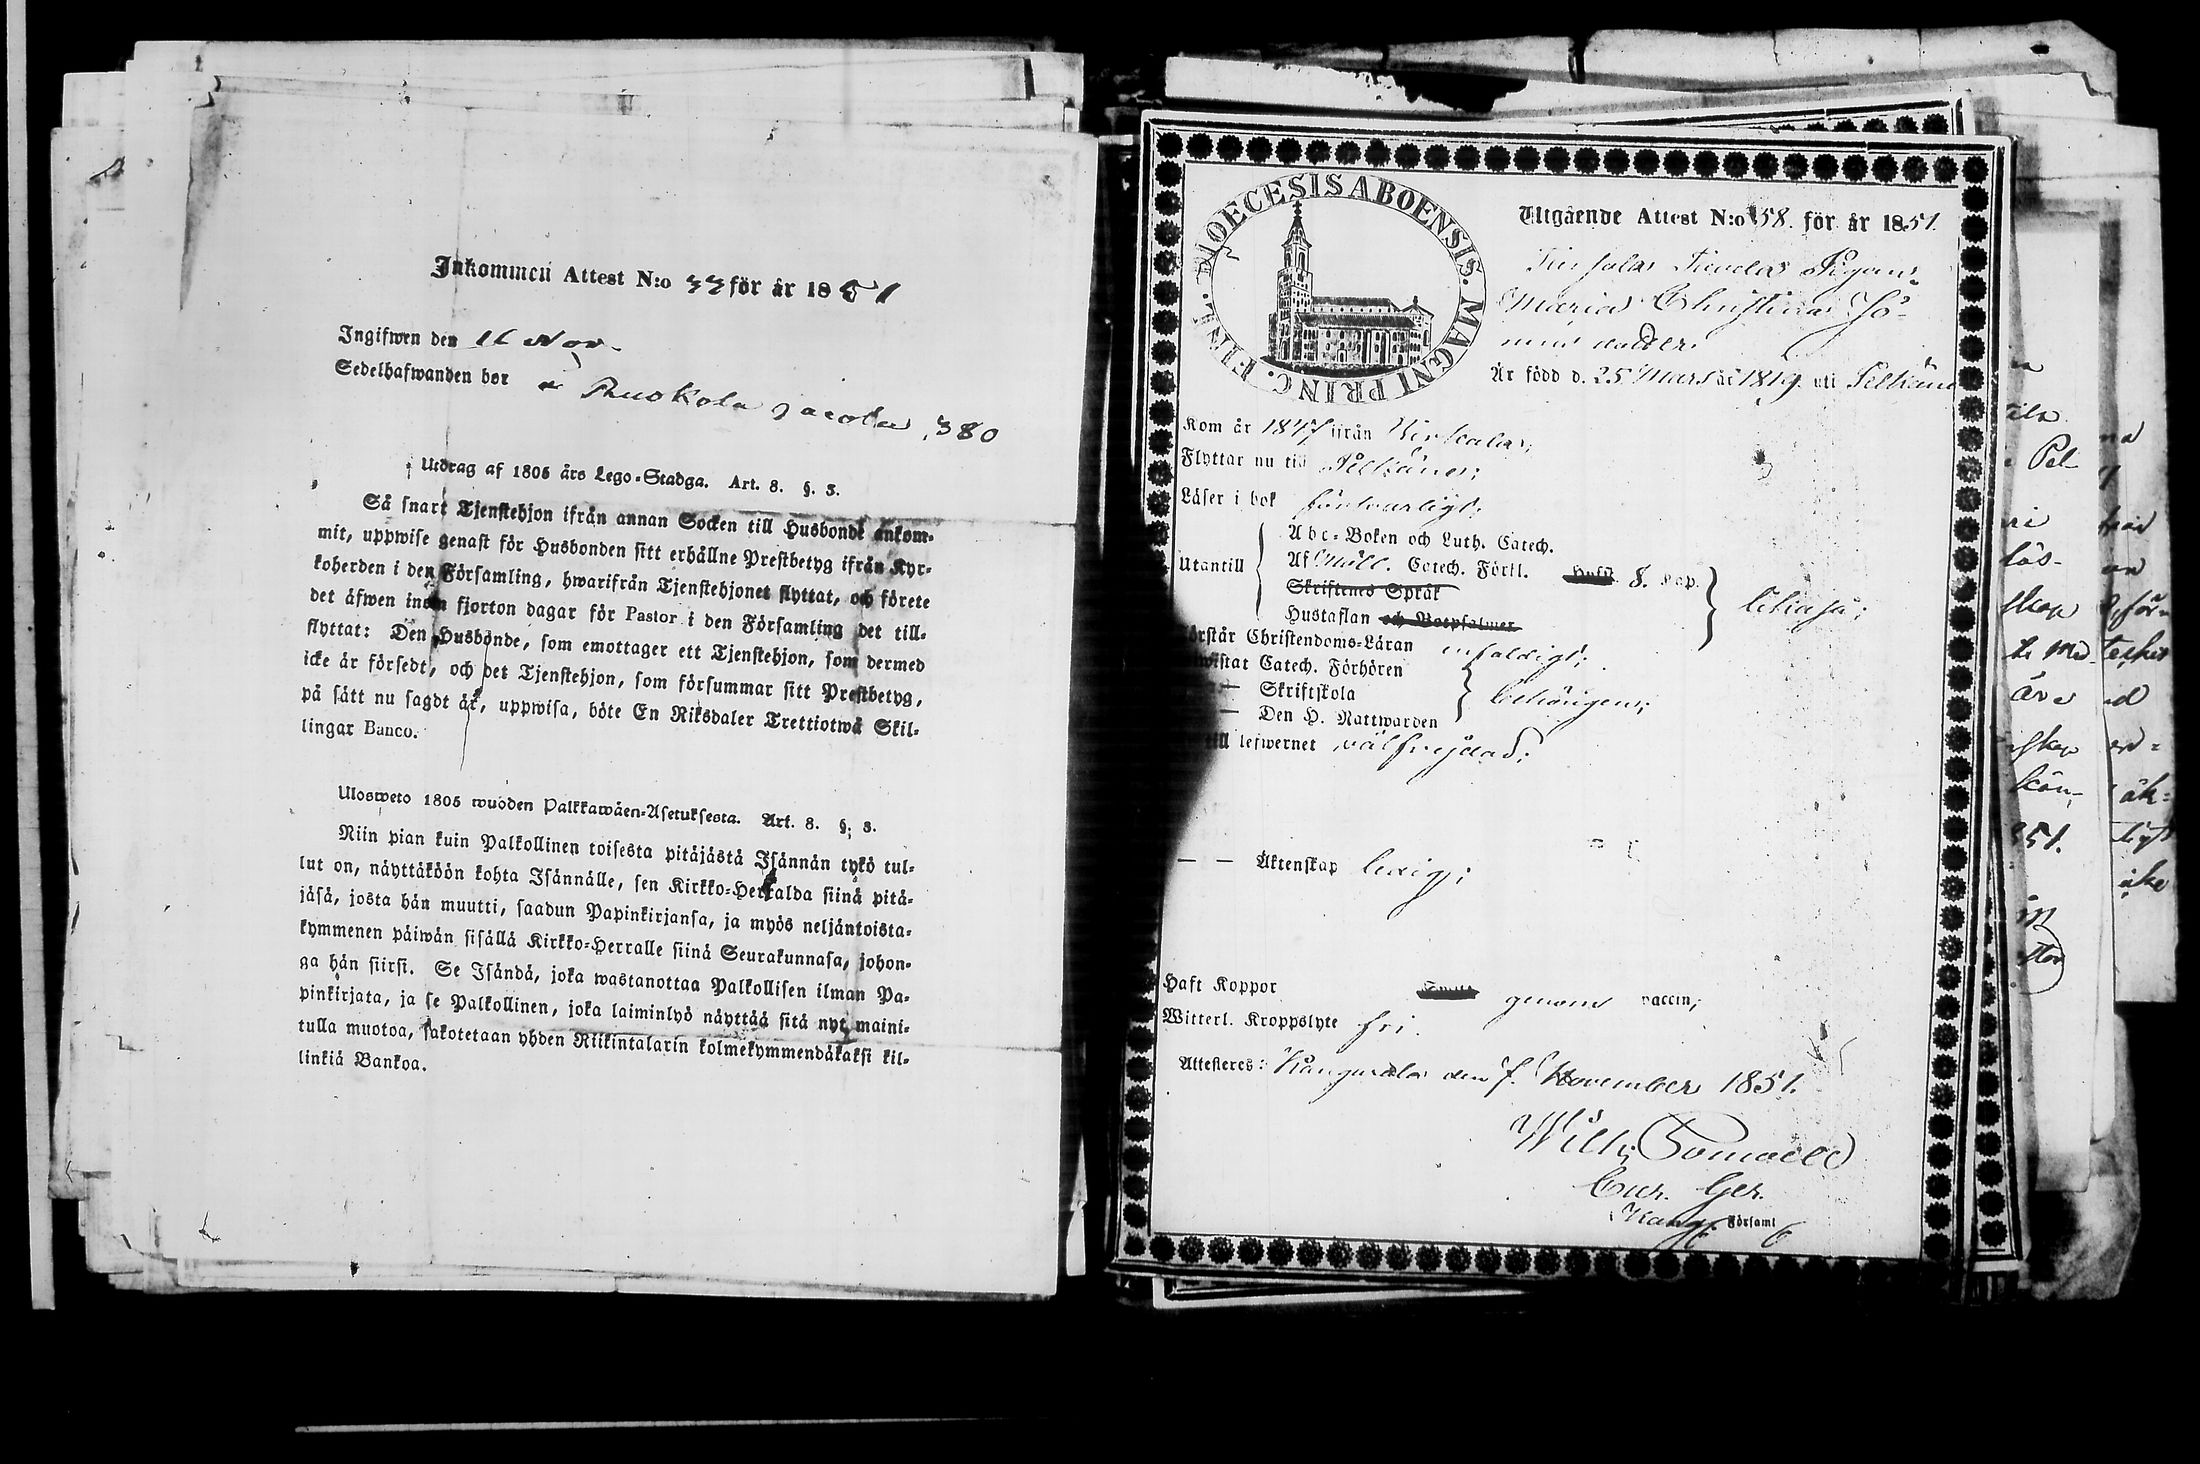 Inkommen Attest N:o 33 för år 1851
Ingifwen den 16 Nov.
Sedelhafwanden bor å Ruokola Jacola, 380
Utdrag af 1805 års Lego-Stadga. Art. 8. §. 3.
Så snart Tjenstehjon ifrån annan Socken till Husbonde ankom-
mit, uppwise genast för Husbonden sitt erhållne Prestbetyg ifrån Kyr-
koherden i den Församling, hwarifrån Tjenstehjonet flyttat, och förete
det äfwen inom fjorton dagar för Pastor i den Församling det till-
flyttat: Den Husbonde, som emottager ett Tjenstehjon, som dermed
icke är försedt, och det Tjenstehjon, som försummar sitt Prestbetyg,
på sätt nu sagdt är, uppwisa, böte En Riksdaler Trettiotwå Skil-
lingar Banco.
Ulosweto 1805 wuoden Palkkawäen-Asetuksesta. Art. 8. §. 3.
Niin pian kuin Palkollinen toisesta pitäjästä Isännän tykö tul-
lut on, näyttäköön kohta Isännälle, sen Kirkko-Herralda siinä pitä-
jäsä, josta hän muutti, saadun Papinkirjansa, ja myös neljäntoista-
kymmenen päiwän sisällä Kirkko-Herralle siinä Seurakunnasa, johon-
ga hän siirsi. Se Isändä, joka wastanottaa Palkollisen ilman Pa-
pinkirjata, ja se Palkollinen, joka laiminlyö näyttää sitä nyt maini-
tulla muotoa, sakotetaan yhden Riikintalarin kolmekymmendäkaksi kil-
linkiä Bankoa.
DIOECESIS ABOENSIS. MAGNI PRINC. FINL.
Utgående Attest N:o 58. för år 1851.
Pigan
Maria Christina Jo-
Är född d. 25 Mars år 1819. uti Pelkäne
Kom år 1847 ifrån Birkala;
Flyttar nu till Pelkäne;
Läser i bok försvarligt;
Utantill
Abc-Boken och Luth. Catech.
Af Möll. Catech. Förkl. 8. Kap.
Skriftenes Språk
Hustaflan och Botpsalmer
Förstår Christendoms-Läran enfaldigt;
Bewistat Catech. Förhören
— Skriftskola
— Den H. Nattwarden
behörigen;
Är till lefwernet välfrejdad;
— — Äktenskap ledig;
Haft Koppor genom vaccin;
Witterl. Kroppslyte fri.
Attesteres: Kangasala den 7. November 1851.
Cur. Ger.
Kang. Församl